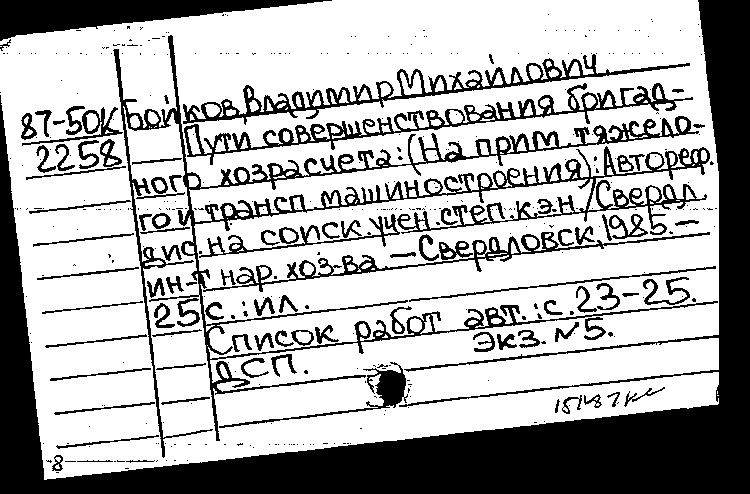 Бойков, Владимир Михайлович.
87-50К
2258
Пути совершенствования бригад-
ного хозрасчета: (На прим. тяжело-
го и трансп. машиностроения): Автореф.
дис. на соиск. учен. степ. к.э.н. / Свердл.
ин-т нар. хоз-ва. — Свердловск, 1985. —
25 с.: ил.
Список работ авт.: с. 23-25.
ДСП. Экз. №5.
8